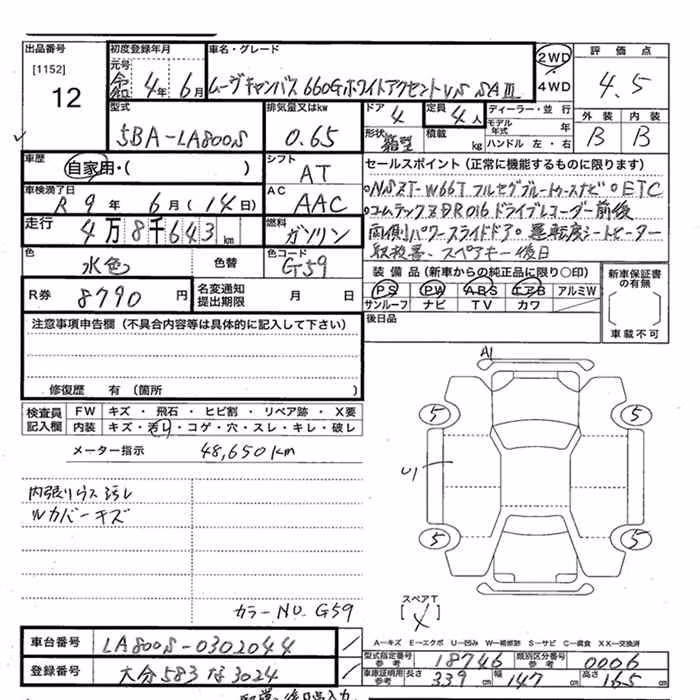 出品番号 初度登録年月 車名・グレード 2WD 評価点
[1152] 元号 令 4年 6月 ムーヴキャンバス 660GホワイトアクセントVS SAⅢ 4WD 4.5
12
型式 排気量又はkw ドア 4 定員 4人 ディーラー・並行 外装 内装
5BA-LA800S 0.65 形状 箱型 積載 kg モデル年式 年 B B
ハンドル 左・右
車歴 自家用・( ) シフト AT セールスポイント(正常に機能するものに限ります)
車検満了日 R 9年 6月(14日) AC AAC •NSZT-W66T フルセグブルートゥースナビ •ETC
走行 4万8千643km 燃料 ガソリン •コムテックZDR016ドライブレコーダー前後
色 水色 色替 色コード G59 両側パワースライドドア・運転席シートヒーター
取扱書、スペアキー後日
R券 8790円 名変通知提出期限 月 日
装備品(新車からの純正品に限り○印) 新車保証書の有無
PS PW ABS エアB アルミW
サンルーフ ナビ TV カワ
注意事項申告欄(不具合内容等は具体的に記入して下さい) 後日品 車載不可
修復歴 有(箇所 )
検査員記入欄 FW キズ・飛石・ヒビ割・リペア跡・X要
内装 キズ・汚レ・コゲ・穴・スレ・キレ・破レ
メーター指示 48,650km
内張リウス汚レ
Wカバーキズ
カラーNO. G59
A1
5 5
U1
5 5
スペアT
[ ]
A-キズ E-エクボ U-凹み W-補修跡 S-サビ C-腐食 XX-交換済
車台番号 LA800S-0302044
型式指定番号参考 18746 類別区分番号参考 0006
登録番号 大分583な3024
車庫証明用参考 長さ 339cm 幅 147cm 高さ 165cm